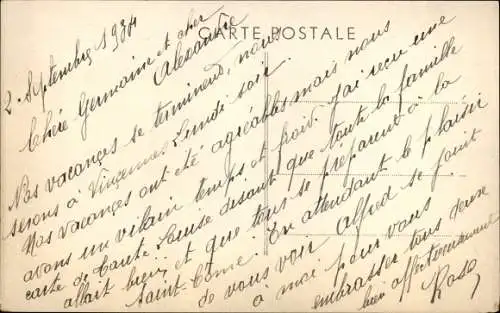 CARTE POSTALE
2 Septembre 1934
Chère Germaine et cher
Alexandre
Nos vacances se terminent, nous
serons à Vincennes Lundi soir.
Nos vacances ont été agréables mais nous
avons un vilain temps, et froid. J'ai reçu une
carte de tante Louise disant que toute la famille
allait bien et que tous se préparent à la
Saint-Come. En attendant le plaisir
de vous voir Alfred se joint
à moi pour vous
embrasser tous deux
bien affectueusement
Rose